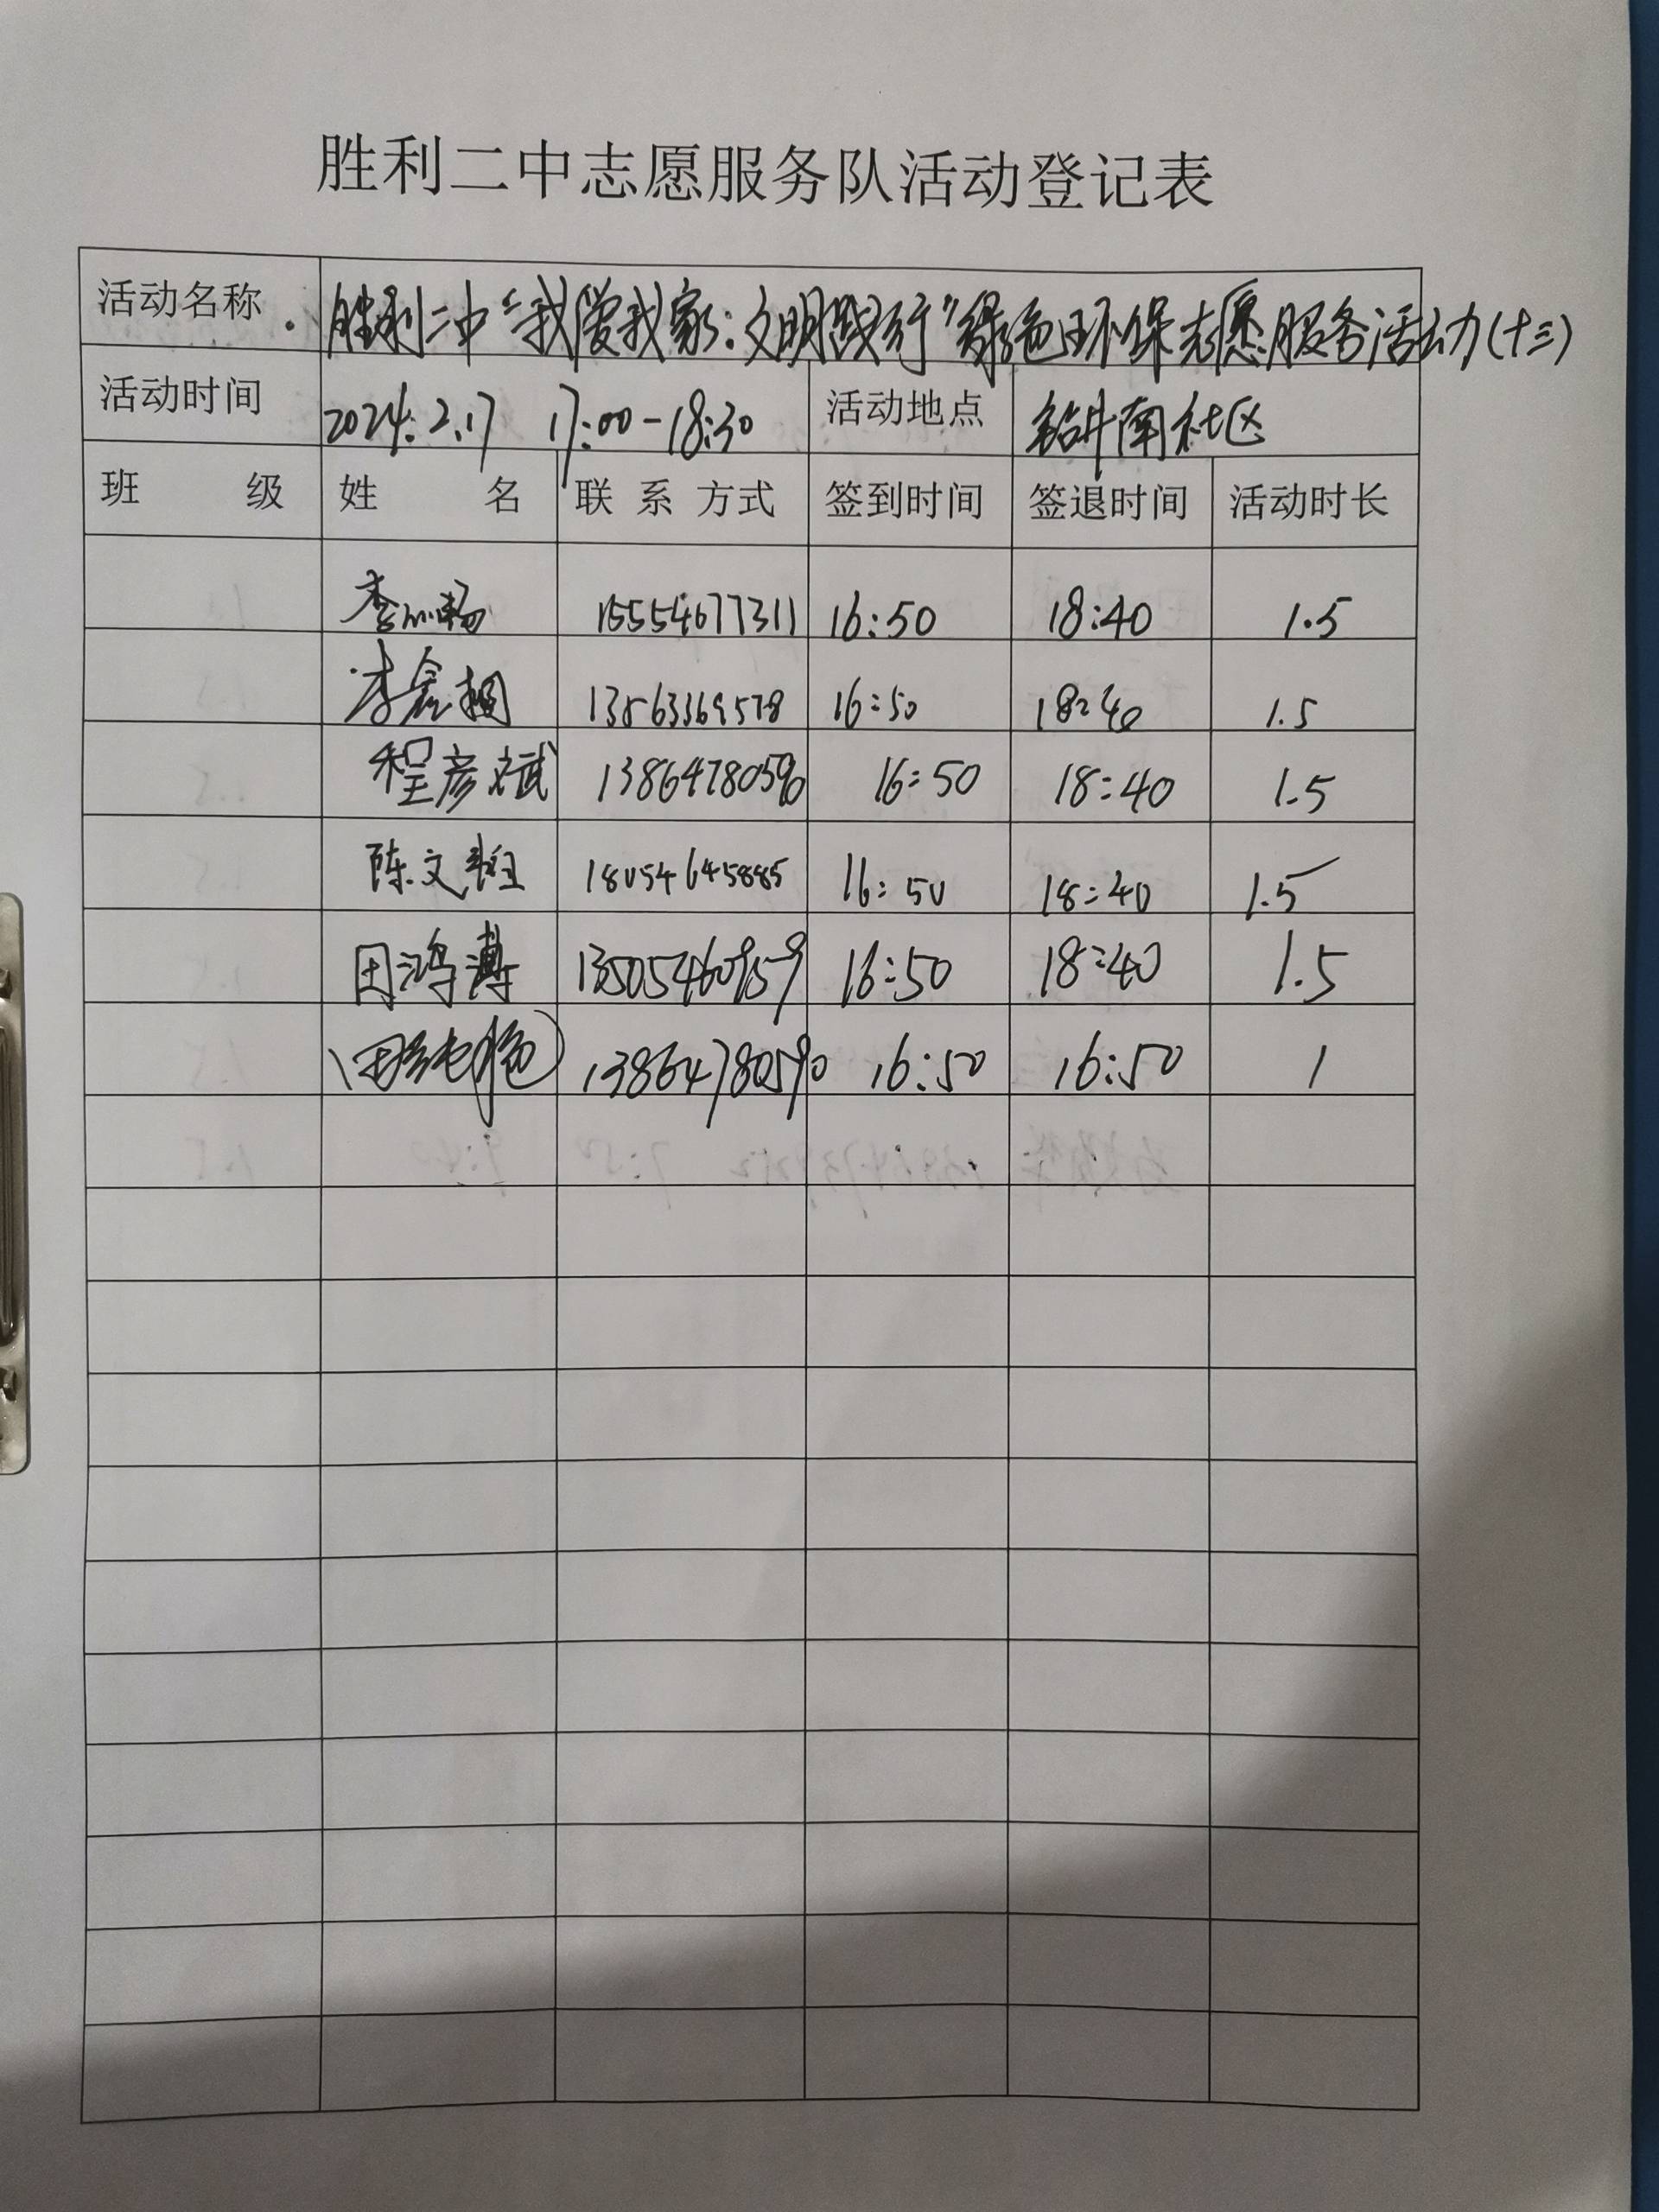 胜利二中志愿服务队活动登记表
活动名称 胜利二中“我爱我家:文明践行”绿色环保志愿服务活动(十三)
活动时间 2024.2.17 17:00-18:30 活动地点 钻井南社区
班 级 姓 名 联 系 方式 签到时间 签退时间 活动时长
李 畅 15554677311 16:50 18:40 1.5
李鑫桐 13563369578 16:50 18:40 1.5
程彦斌 13864780590 16:50 18:40 1.5
陈文 18054645885 16:50 18:40 1.5
田鸿溥 13505460959 16:50 18:40 1.5
13864780590 16:50 16:50 1